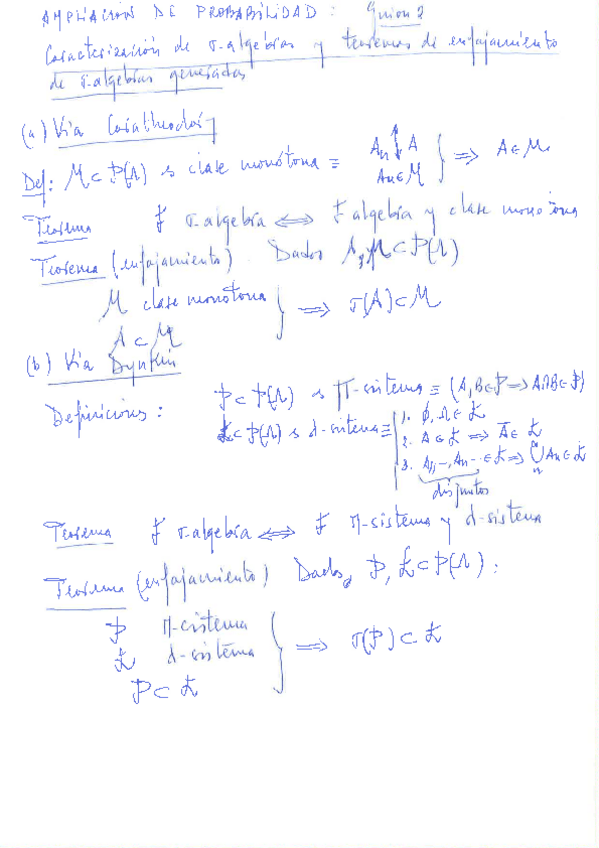 AMPLIACION DE PROBABILIDAD: Guion 2
Caracterización de σ-algebras y teoremas de enfajamiento
de σ-algebras generadas
(a) Vía Caratheodory
Def: M ⊂ P(Λ) es clase monótona ≡ An ↕ A
An ∈ M } ⟹ A ∈ M.
Teorema F σ-algebra ⟺ F algebra y clase monótona
Teorema (enfajamiento). Dados A, M ⊂ P(Λ)
M clase monótona
A ⊂ M } ⟹ σ(A) ⊂ M
(b) Vía Dynkin
Definiciones: P ⊂ P(Λ) es Π-sistema ≡ (A, B ∈ P ⟹ A∩B ∈ P)
L ⊂ P(Λ) es d-sistema ≡ 1. ∅, Λ ∈ L
2. A ∈ L ⟹ Ā ∈ L
3. A1, --, An -- ∈ L ⟹ ⋃ An ∈ L
n
disjuntos
Teorema F σ-algebra ⟺ F Π-sistema y d-sistema
Teorema (enfajamiento) Dados, P, L ⊂ P(Λ):
P Π-sistema
L d-sistema } ⟹ σ(P) ⊂ L
P ⊂ L